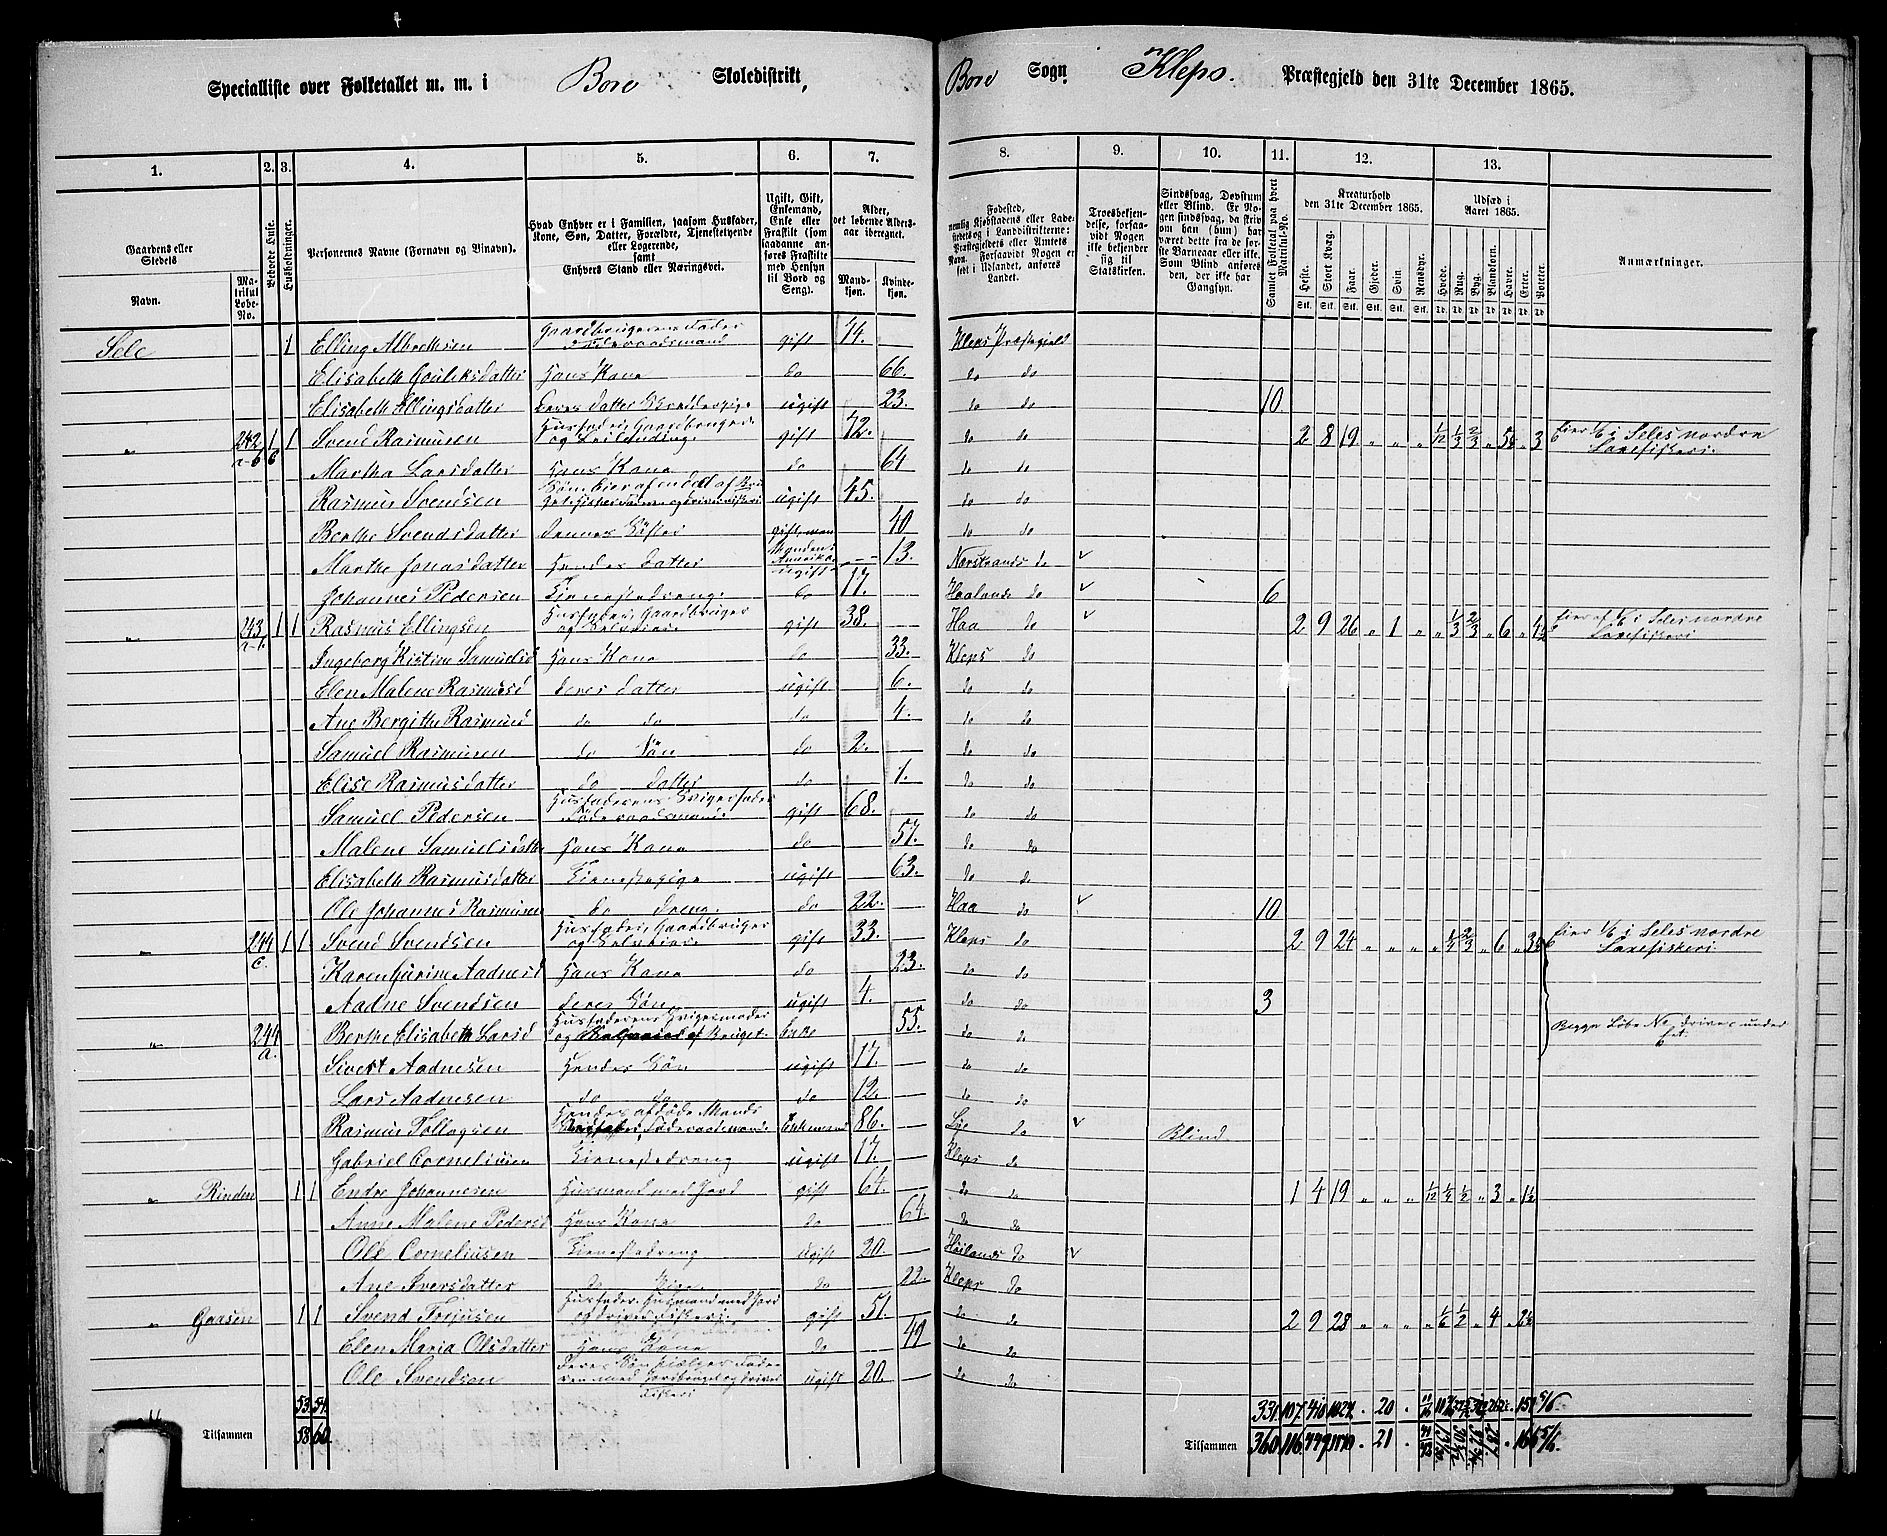 Specialliste over Folketallet m. m. i Bore Skoledistrikt, Bore Sogn Kleps. Præstegjeld den 31te December 1865.
1. 2. 3. 4. 5. 6. 7. 8. 9. 10. 11. 12. 13.
Gaardens eller Stedets
Navn.
Matrikul Løbe-No.
Beboede Huse.
Husholdninger.
Personernes Navne (Fornavn og Tilnavn).
Hvad Enhver er i Familien, saasom Husfader, Kone, Søn, Datter, Forældre, Tjenestetyende eller Logerende, samt Enhvers Stand eller Næringsvei.
Ugift, Gift, Enkemand, Enke eller Fraskilt (som saadanne anføres Fraskilte med Hensyn til Bord og Seng).
Alder, det løbende Aldersaar iberegnet.
Mandkjøn. Kvindekjøn.
Fødested, nemlig Kjøbstadens eller Ladestedets og i Landdistrikterne: Præstegjeldets eller Amtets Navn. Forsaavidt Nogen er født i Udlandet, anføres Landet.
Troesbekjendelse, forsaavidt Nogen ikke bekjender sig til Statskirken.
Sindssvag, Døvstum eller Blind. Er Nogen sindssvag, da skrives om han (hun) har været dette fra de første Barneaar eller ikke. Som Blind anføres den, der ikke har Gangsyn.
Samlet Folketal paa hvert Matrikul-No.
Kreaturhold den 31te December 1865.
Heste. Stort Kvæg. Faar. Gjeder. Svin. Rensdyr.
Udsæd i Aaret 1865.
Hvede. Rug. Byg. Blandkorn. Havre. Erter. Poteter.
Anmærkninger.
Sele 1 Elling Albrethsen Gaardbrugerens Fader Føderaadsmand gift 74. Kleps Præstegjeld
Elisabeth Gouleksdatter Hans Kone do 66. do do
Elisabeth Ellingsdatter Deres Datter ugift 23. do do 10
" 242 a-b 1 1 Svend Rasmusen Husfader, Gaardbruger og Leilending gift 72. do do 2 8 19 " " " 1/12 1/3 2/3 " 5½ " 3 Eier 1/6 i Seles nordre Laxefiskeri.
Martha Larsdatter Hans Kone do 64 do do
Rasmus Svendsen ugift 45. do do
Berthe Svendsdatter Dennes Søster gift, men Manden i Amerika 40 do do
Marthe Jonasdatter Hendes Datter ugift 13. Nærstrands do
Johannes Pedersen Tjenestedreng do 17. Haalands do 6
" 243 a-b 1 1 Rasmus Ellingsen Husfader, Gaardbruger og Selveier gift 38. Haa do 2 9 26 " 1 " " 1/3 2/3 " 6 " 4½ Eier af 1/6 i Seles nordre Laxefiskeri
Ingeborg Kistine Samuelsd Hans Kone do 33. Kleps do
Elen Malene Rasmusd Deres Datter ugift 6. do do
Ane Bergithe Rasmusd do do do 4. do do
Samuel Rasmusen do Søn do 2. do do
Elise Rasmusdatter do Datter do 1. do do
Samuel Pedersen Husfaderens Svigerfader Føderaadsmand gift 68. do do
Malene Samuelsdatter Hans Kone do 57. do do
Elisabeth Rasmusdatter Tjenestepige ugift 63. do do
Ole Johannes Rasmusen do dreng. do 22. Haa do 10
" 244 c. 1 1 Svend Svendsen Husfader, Gaardbruger og Selveier gift 33. Kleps do 2 9 24 " " " " 1/4 2/3 " 6 " 3½ Eier 1/6 i Seles nordre Laxefiskeri
Karen Gurine Aadnesd Hans Kone do 23. do do
Aadne Svendsen Deres Søn ugift 4. do do 3
" 244 a. Berthe Elisabeth Larsd Husfaderens Svigermoder og Bruget. Enke 55. do do Begge Løbe No drives under Eet.
Sivert Aadnesen Hendes Søn ugift 17. do do
Lars Aadnesen do do do 12. do do
Rasmus Tollagsen Hendes afdøde Mands Føderaadsmand Enkemand 86. Lye do Blind
Gabriel Corneliusen Tjenestedreng ugift 17. Kleps do
" Rinden 1 1 Endre Johannesen Husmand med Jord gift 64. do do 1 4 19 " " " 1/12 1/4 1/2 " 3 " 1½
Anne Malene Pedersd Hans Kone do 64. do do
Ole Corneliusen Tjenestedreng ugift 20. Høilands do
Ane Iversdatter do Pige do 22. Kleps do
" Gaasen 1 1 Svend Terjusen Husfader, Husmand med Jord og driver Fiskeri gift 51. do do 2 9 28 " " " " 1/6 1/2 " 4 " 2½
Elen Maria Olsdatter Hans Kone do 49 do do
Ole Svendsen Deres Søn hjælper Faderen med Jordbruget og driver Fiskeri ugift 20. do do
53. 54. 331 107.
Tilsammen 58 60 Tilsammen 360 116 " 21